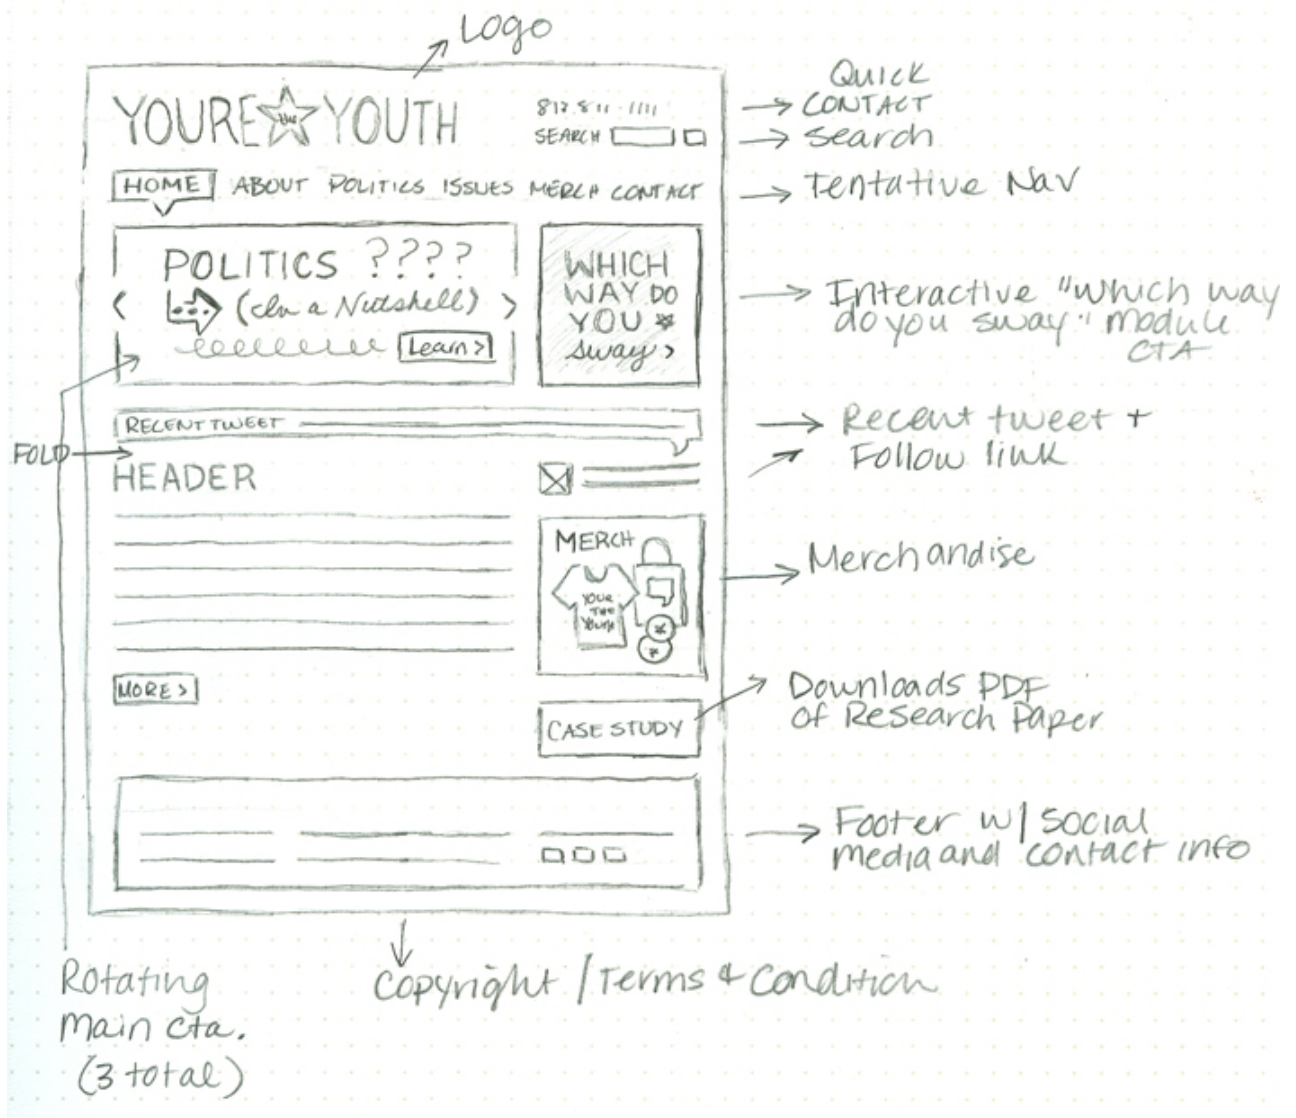 Logo
YOURE the YOUTH
817.811.1111
SEARCH
Quick
CONTACT
search
HOME ABOUT POLITICS ISSUES MERCH CONTACT
Tentative Nav
POLITICS ????
(In a Nutshell)
Learn >
WHICH
WAY DO
YOU
sway >
Interactive "which way
do you sway" module
CTA
RECENT TWEET
Recent tweet +
Follow link
FOLD
HEADER
MERCH
YOUR
THE
Youth
Merchandise
MORE >
CASE STUDY
Downloads PDF
of Research Paper
Footer w/ social
media and contact info
Rotating
main cta.
(3 total)
Copyright / Terms & Condition